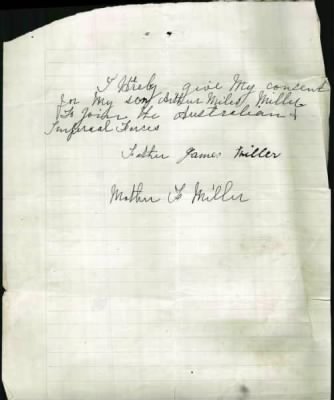 I Hereby give My concent
for My son Arthur Miles Miller
To Join the Australian
Imperial Forces
Father James Miller
Mother F Miller